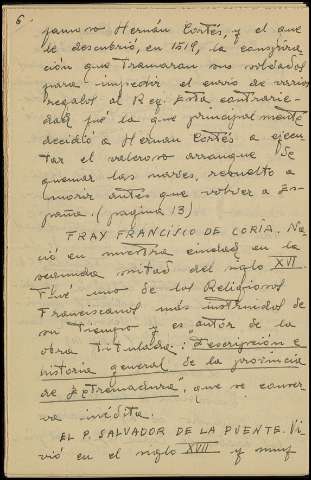 6.
famoso Hernán Cortés, y el que
le descubrió, en 1519, la conspira-
ción que tramaran sus soldados
para impedir el envio de varios
regalos al Rey. Esta contrarie-
dad fué la que principalmente
decidió a Hernan Cortés a ejecu-
tar el valeroso arranque de
quemar las naves, resuelto a
morir antes que volver a Es-
paña. (pagina 13)
FRAY FRANCISCO DE CORIA. Na-
ció en nuestra ciudad en la
segunda mitad del siglo XVI.
Fué uno de los Religiosos
Franciscanos más instruidos de
su tiempo y es autor de la
obra titulada: Descripcion e
historia general de la provincia
de Extremadura, que se conser-
va inédita.
EL P. SALVADOR DE LA PUENTE. Vi-
vió en el siglo XVII y muy